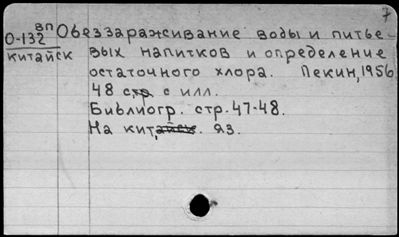 7
ВП
О-132
китайск
Обеззараживание воды и питье-
вых напитков и определение
остаточного хлора. Пекин, 1956
48 стр. с илл.
Библиогр. стр. 47-48.
На китайск. яз.